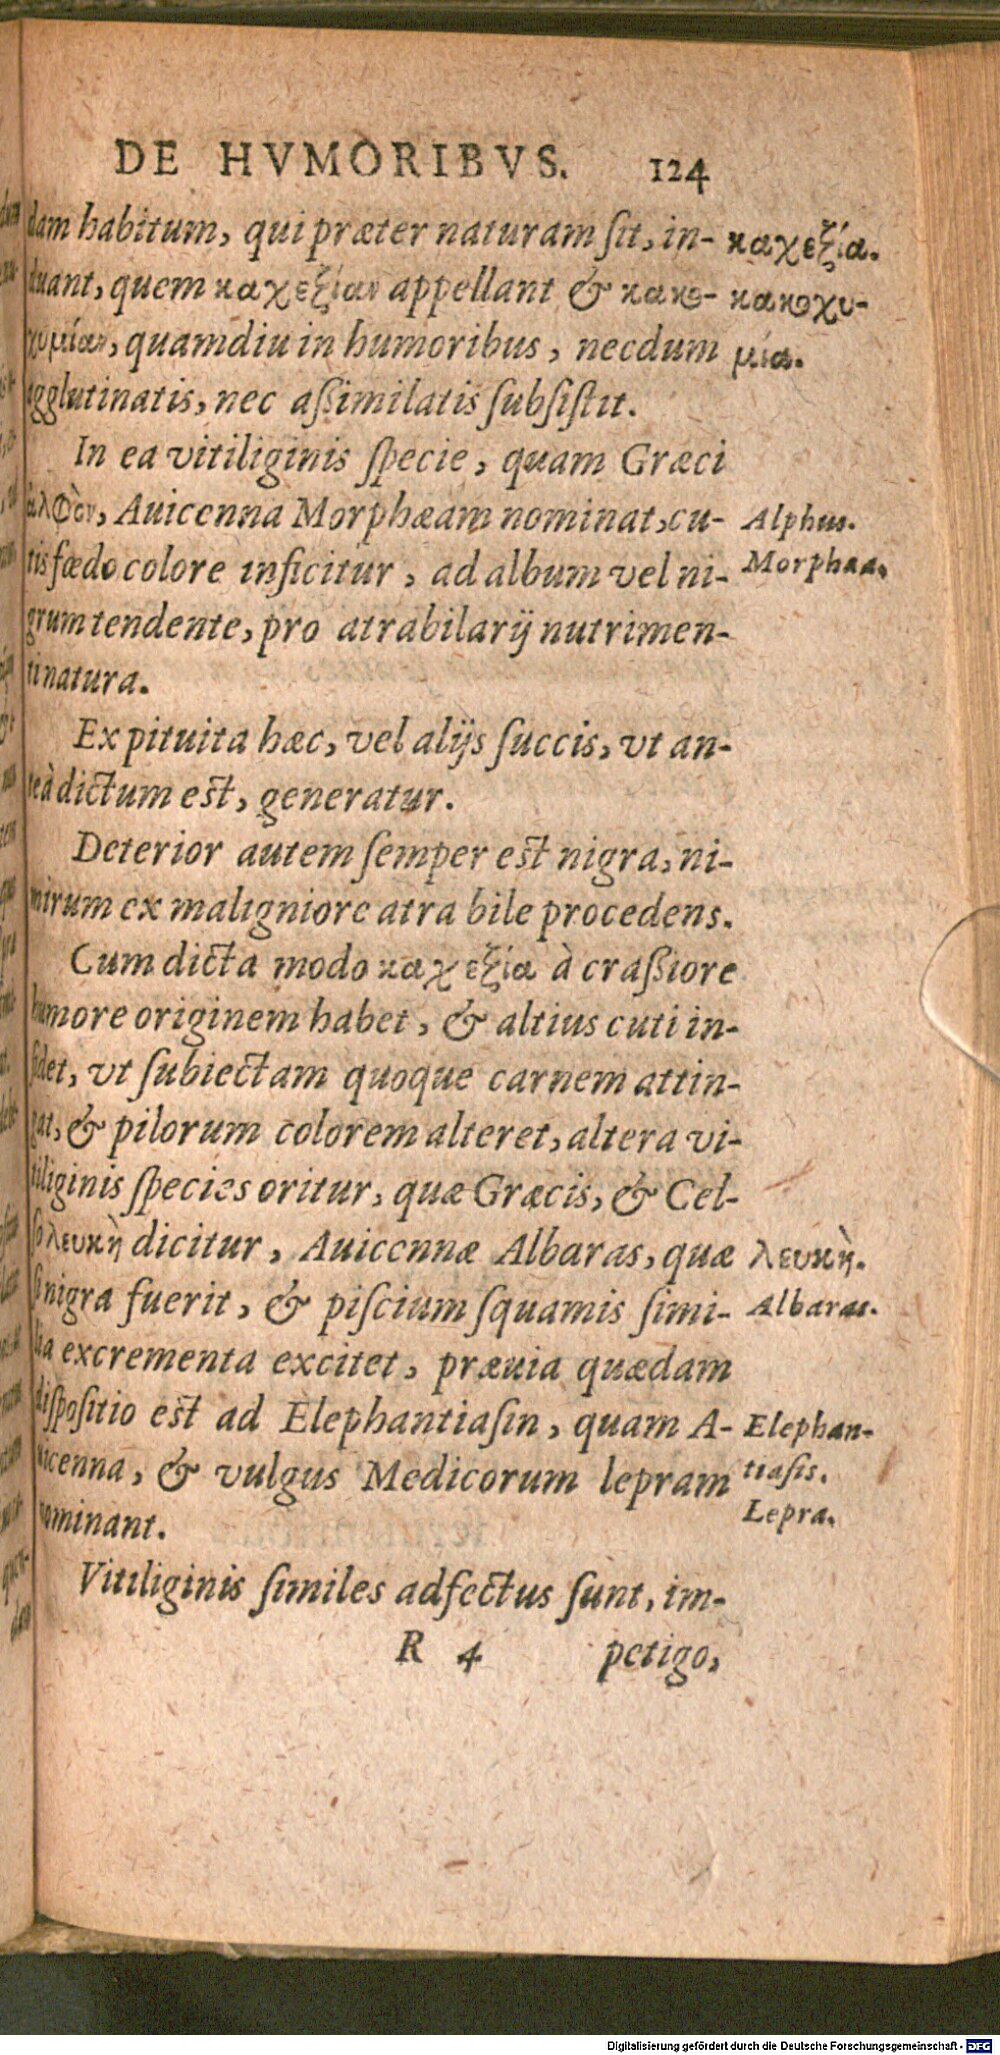 DE HVMORIBVS. 124
dam habitum, qui præter naturam ſit, in-
duant, quem καχεξίαν appellant & κακο-
χυμίαν, quamdiu in humoribus, necdum
agglutinatis, nec aſsimilatis ſubſiſtit.
In ea vitiliginis ſpecie, quam Græci
ἀλφὸν, Auicenna Morphæam nominat, cu-
tis fœdo colore inficitur, ad album vel ni-
grum tendente, pro atrabilarij nutrimen-
ti natura.
Ex pituita hæc, vel alijs ſuccis, vt an-
teà dictum est, generatur.
Deterior autem ſemper est nigra, ni-
mirum ex maligniore atra bile procedens.
Cum dicta modo καχεξία à craſsiore
humore originem habet, & altius cuti in-
ſidet, vt ſubiectam quoque carnem attin-
gat, & pilorum colorem alteret, altera vi-
tiliginis ſpecies oritur, quæ Græcis, & Cel-
ſo λευκὴ dicitur, Auicennæ Albaras, quæ
ſi nigra fuerit, & piſcium ſquamis ſimi-
lia excrementa excitet, præuia quædam
diſpoſitio est ad Elephantiaſin, quam A-
uicenna, & vulgus Medicorum lepram
nominant.
Vitiliginis ſimiles adfectus ſunt, im-
R 4 petigo,
καχεξία.
κακοχυ-
μία.
Alphus.
Morphæa.
λευκὴ.
Albaras.
Elephan-
tiaſis.
Lepra.
Digitalisierung gefördert durch die Deutsche Forschungsgemeinschaft - DFG